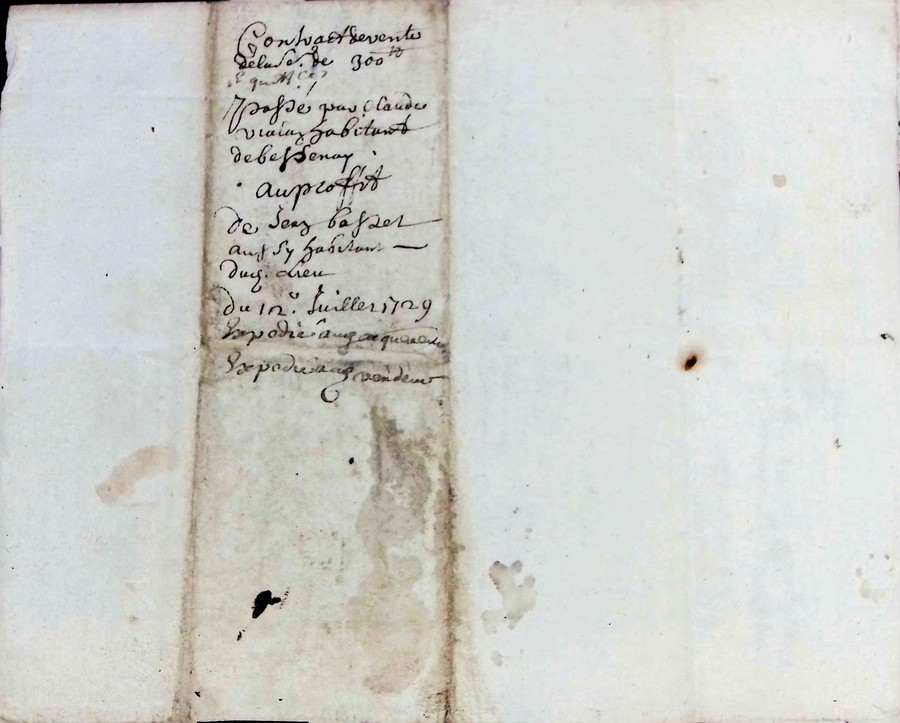 Contract de vente
de la Se. de 300 tt
et quittce
passé par Claude
viaiay habitant
de bessenay
au proffit
de Jean basset
aussy habitant
dud. Lieu
du 12e. Juillet 1729
Expedié aud acquereur
Expedié aud vendeur